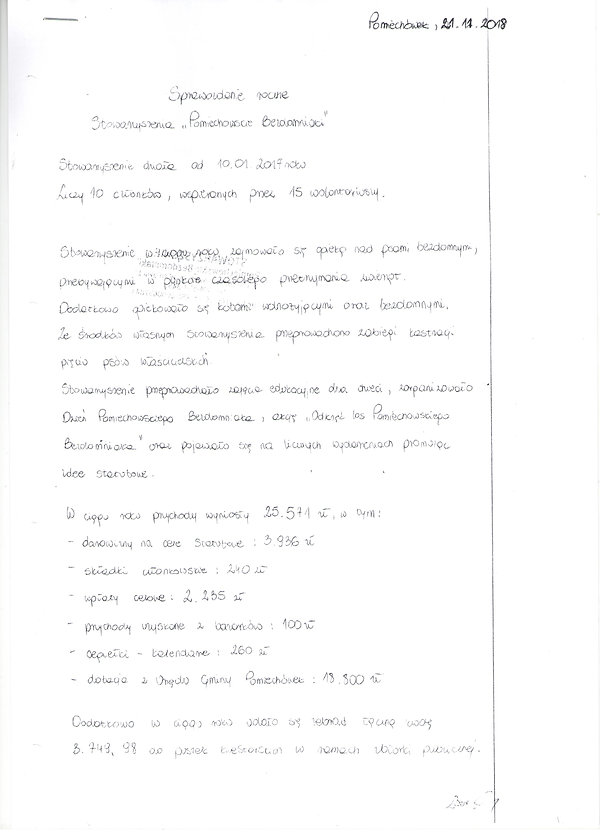 Pomiechówek, 21.11.2018
Sprawozdanie roczne
Stowarzyszenia „Pomiechowskie Bezdomniaki"
Stowarzyszenie działa od 10.01.2017 roku
Liczy 10 członków, wspieranych przez 15 wolontariuszy.
Stowarzyszenie w ciągu roku zajmowało się opieką nad psami bezdomnymi,
przebywającymi w punkcie czasowego przetrzymania zwierząt.
Dodatkowo opiekowało się kotami wolnożyjącymi oraz bezdomnymi.
Ze środków własnych Stowarzyszenia przeprowadzono zabiegi kastracji
pięciu psów właścicielskich.
Stowarzyszenie przeprowadzało zajęcia edukacyjne dla dzieci, zorganizowało
Dzień Pomiechowskiego Bezdomniaka, akcję „Odkręć los Pomiechowskiego
Bezdomniaka" oraz pojawiało się na licznych wydarzeniach promując
idee statutowe.
W ciągu roku przychody wyniosły 25.571 zł, w tym:
- darowizny na cele statutowe : 3.936 zł
- składki członkowskie : 240 zł
- wpłaty celowe : 2.235 zł
- przychody uzyskane z : 100 zł
- cegiełki - kalendarze : 260 zł
- dotacja z Urzędu Gminy Pomiechówek : 18.800 zł
Dodatkowo w ciągu roku udało się zebrać łączną kwotę
3.749,98 do puszek kwestarskich w ramach zbiórki publicznej.